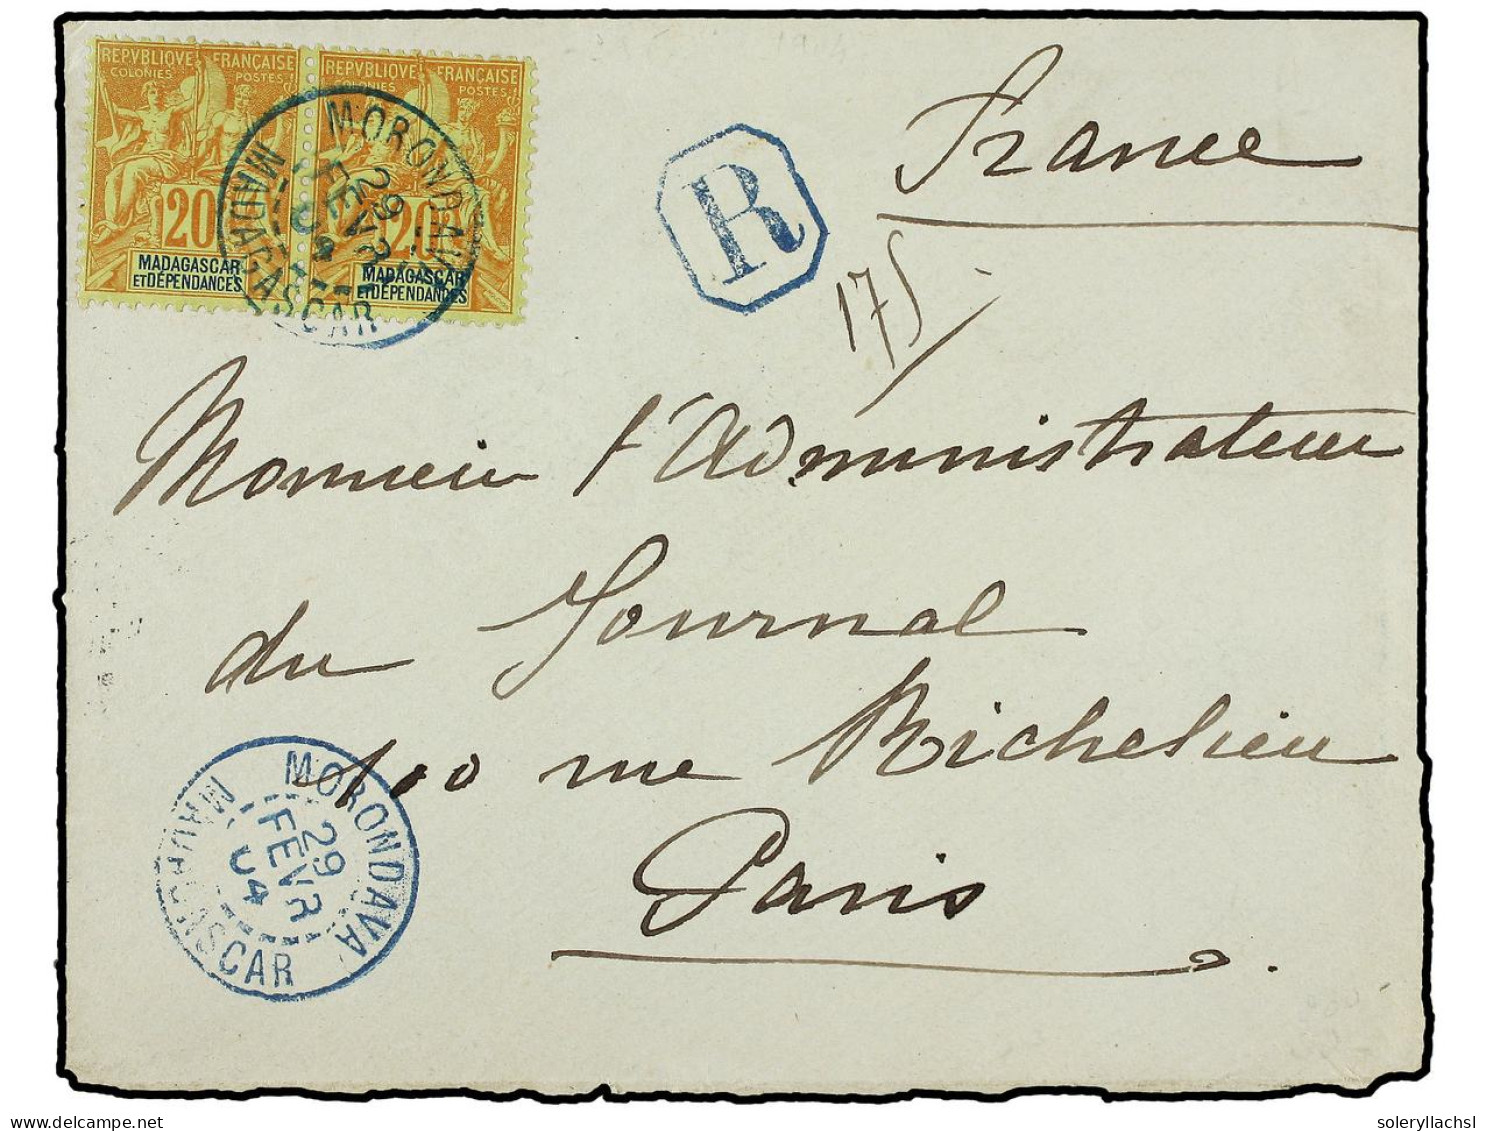 REPVBLIQUE FRANÇAISE
COLONIES POSTES
20
MADAGASCAR
ET DÉPENDANCES
REPVBLIQUE FRANÇAISE
COLONIES POSTES
20
MADAGASCAR
ET DÉPENDANCES
MORONDAVA
29
FEVR
04
MADAGASCAR
R
France
175
Monsieur l'Administrateur
du Journal
100 rue Richelieu
Paris
MORONDAVA
29
FEVR
04
MADAGASCAR
delcampe.net
soleryllachsl